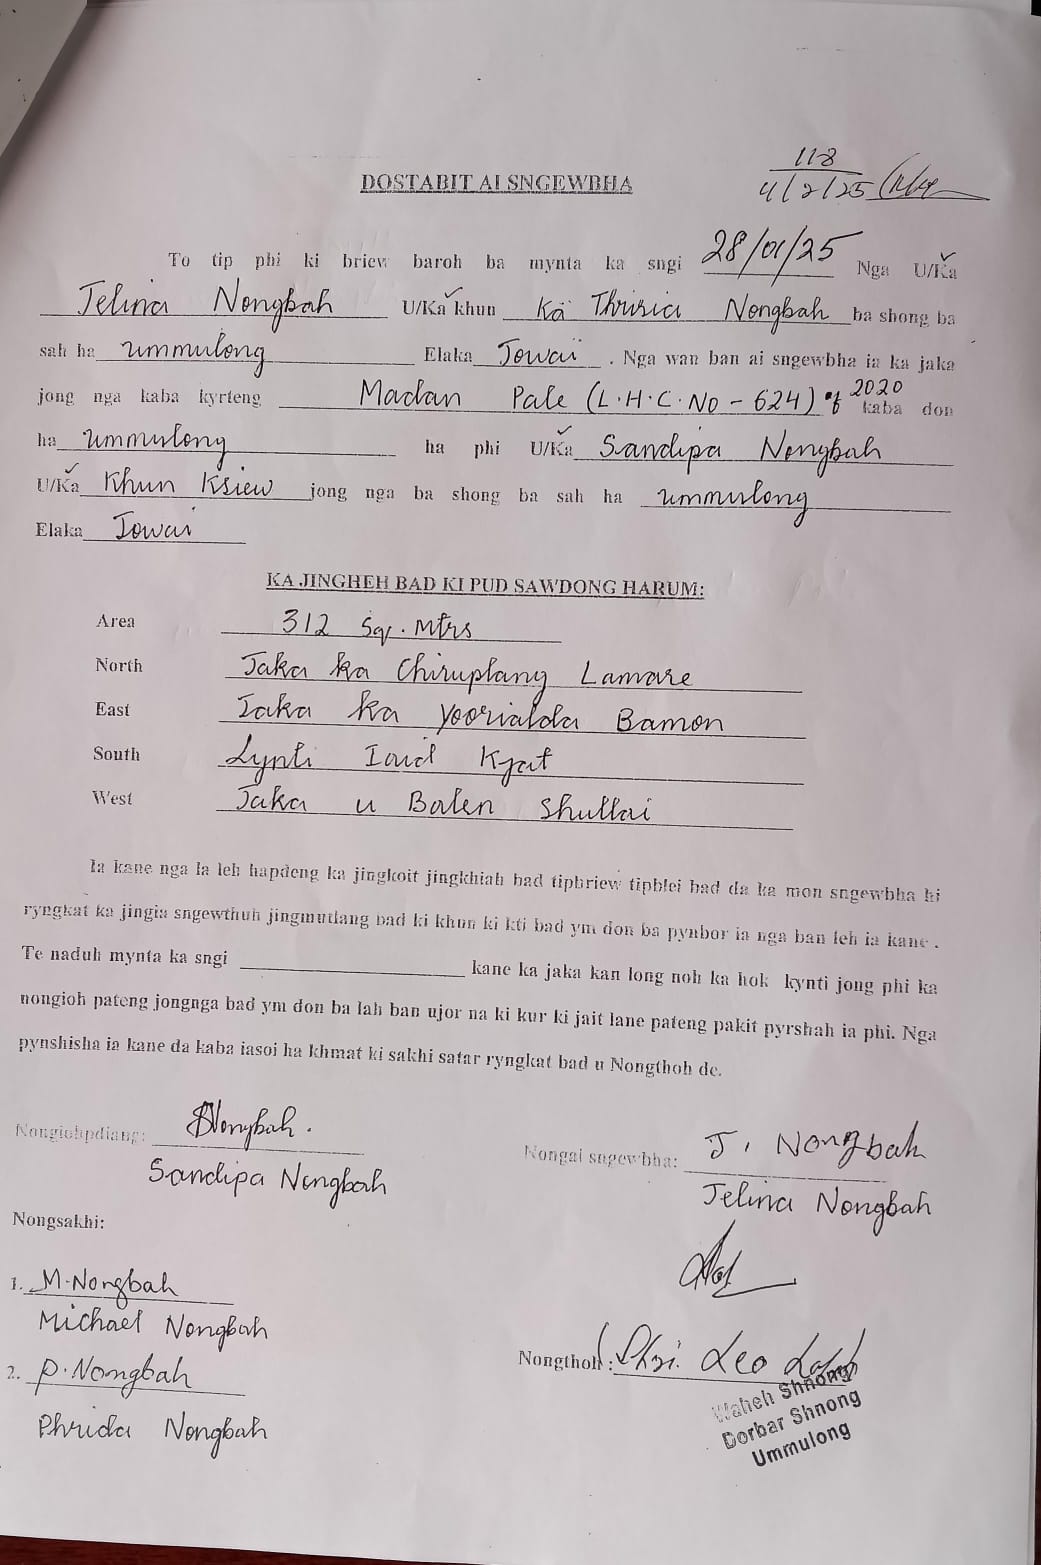 118
DOSTABIT AI SNGEWBHA
4/2/25
To tip phi ki briew baroh ba mynta ka sngi 28/01/25 Nga U/Ka
Jelina Nongbah U/Ka khun Ka Thrisia Nongbah ba shong ba
sah ha Ummulong Elaka Jowai . Nga wan ban ai sngewbha ia ka jaka
jong nga kaba kyrteng Madan Pale (L.H.C.No - 624) of 2020 kaba don
ha Ummulong ha phi U/Ka Sandipa Nongbah
U/Ka Khun Ksiew jong nga ba shong ba sah ha Ummulong
Elaka Jowai
KA JINGHEH BAD KI PUD SAWDONG HARUM:
Area 312 Sqr. Mtrs
North Jaka ka Chiruplang Lamare
East Jaka ka Yoorialda Bamon
South Lynti Iaid Kjat
West Jaka u Balen Shullai
Ia kane nga la leh hapdeng ka jingkoit jingkhiah bad tipbriew tipblei bad da ka mon sngewbha hi
ryngkat ka jingia sngewthuh jingmutlang bad ki khun ki kti bad ym don ba pynbor ia nga ban leh ia kane .
Te naduh mynta ka sngi kane ka jaka kan long noh ka hok kynti jong phi ka
nongioh pateng jongnga bad ym don ba lah ban ujor na ki kur ki jait lane pateng pakit pyrshah ia phi. Nga
pynshisha ia kane da kaba iasoi ha khmat ki sakhi satar ryngkat bad u Nongthoh de.
Nongiohpdiang: SNongbah.
Nongai sngewbha: J. Nongbah
Sandipa Nongbah
Jelina Nongbah
Nongsakhi:
1. M.Nongbah
Michael Nongbah
2. P.Nongbah
Phrida Nongbah
Nongthoh : (Shri. Leo
Waheh Shnong
Dorbar Shnong
Ummulong